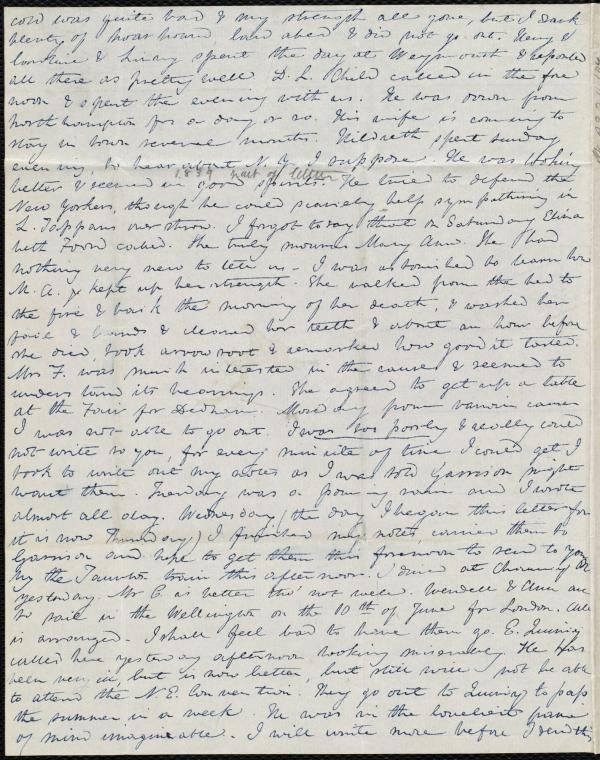 cold was quite bad & my strength all gone, but I drank
plenty of hoarhound, laid abed & did not go out. Henry &
Caroline & Lucia spent the day at Weymouth & reported
all there as pretty well D. L. Child called in the fore
noon & spent the evening with us. He was down from
Northampton for a day or so. His wife is coming to
stay in town several months. Hildreth spent Sunday
evening, to hear about N.Y. I suppose. He was looking
1839 part of letter
better & seemed in good spirits. He tried to defend the
New Yorkers, though he could scarcely help sympathizing in
L. Tappans overthrow. I forgot to say that on Saturday Eliza
beth Foord called. She truly mourns Mary Ann. She had
nothing very new to tell us - I was astonished to learn how
M. A. J. kept up her strength. She walked from the bed to
the fire & back the morning of her death, & washed her
face & hands & cleaned her teeth & about an hour before
she died, took arrowroot & remarked how good it tasted.
Mrs F. was much interested in the cause & seemed to
understand its bearings. She agreed to get up a table
at the Fair for Dedham. Monday from various causes
I was not able to go out. I was too poorly & really could
not write to you, for every minute of time I could get I
took to write out my notes as I was told Garrison might
want them. Tuesday was a pouring rain and I wrote
almost all day. Wednesday (the day I began this letter for
it is now Thursday) I finished my notes, carried them to
Garrison and hope to get them this forenoon to send to you
by the Taunton train this afternoon. I dined at Chauncy Pl
yesterday. Mr C. is better tho' not well. Wendell & Ann are
to sail in the Wellington on the 10th of June for London. All
is arranged. I shall feel bad to have them go. E. Quincy
called here yesterday afternoon looking miserably. He has
been very ill, but is now better, but still will not be able
to attend the N. E. Convention. They go out to Quincy to pass
the summer in a week. He was in the loveliest frame
of mind imagineable. I will write more before I send this